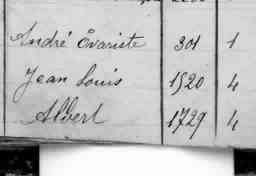 André Évariste 301 1
Jean Louis 1520 4
Albert 1729 4